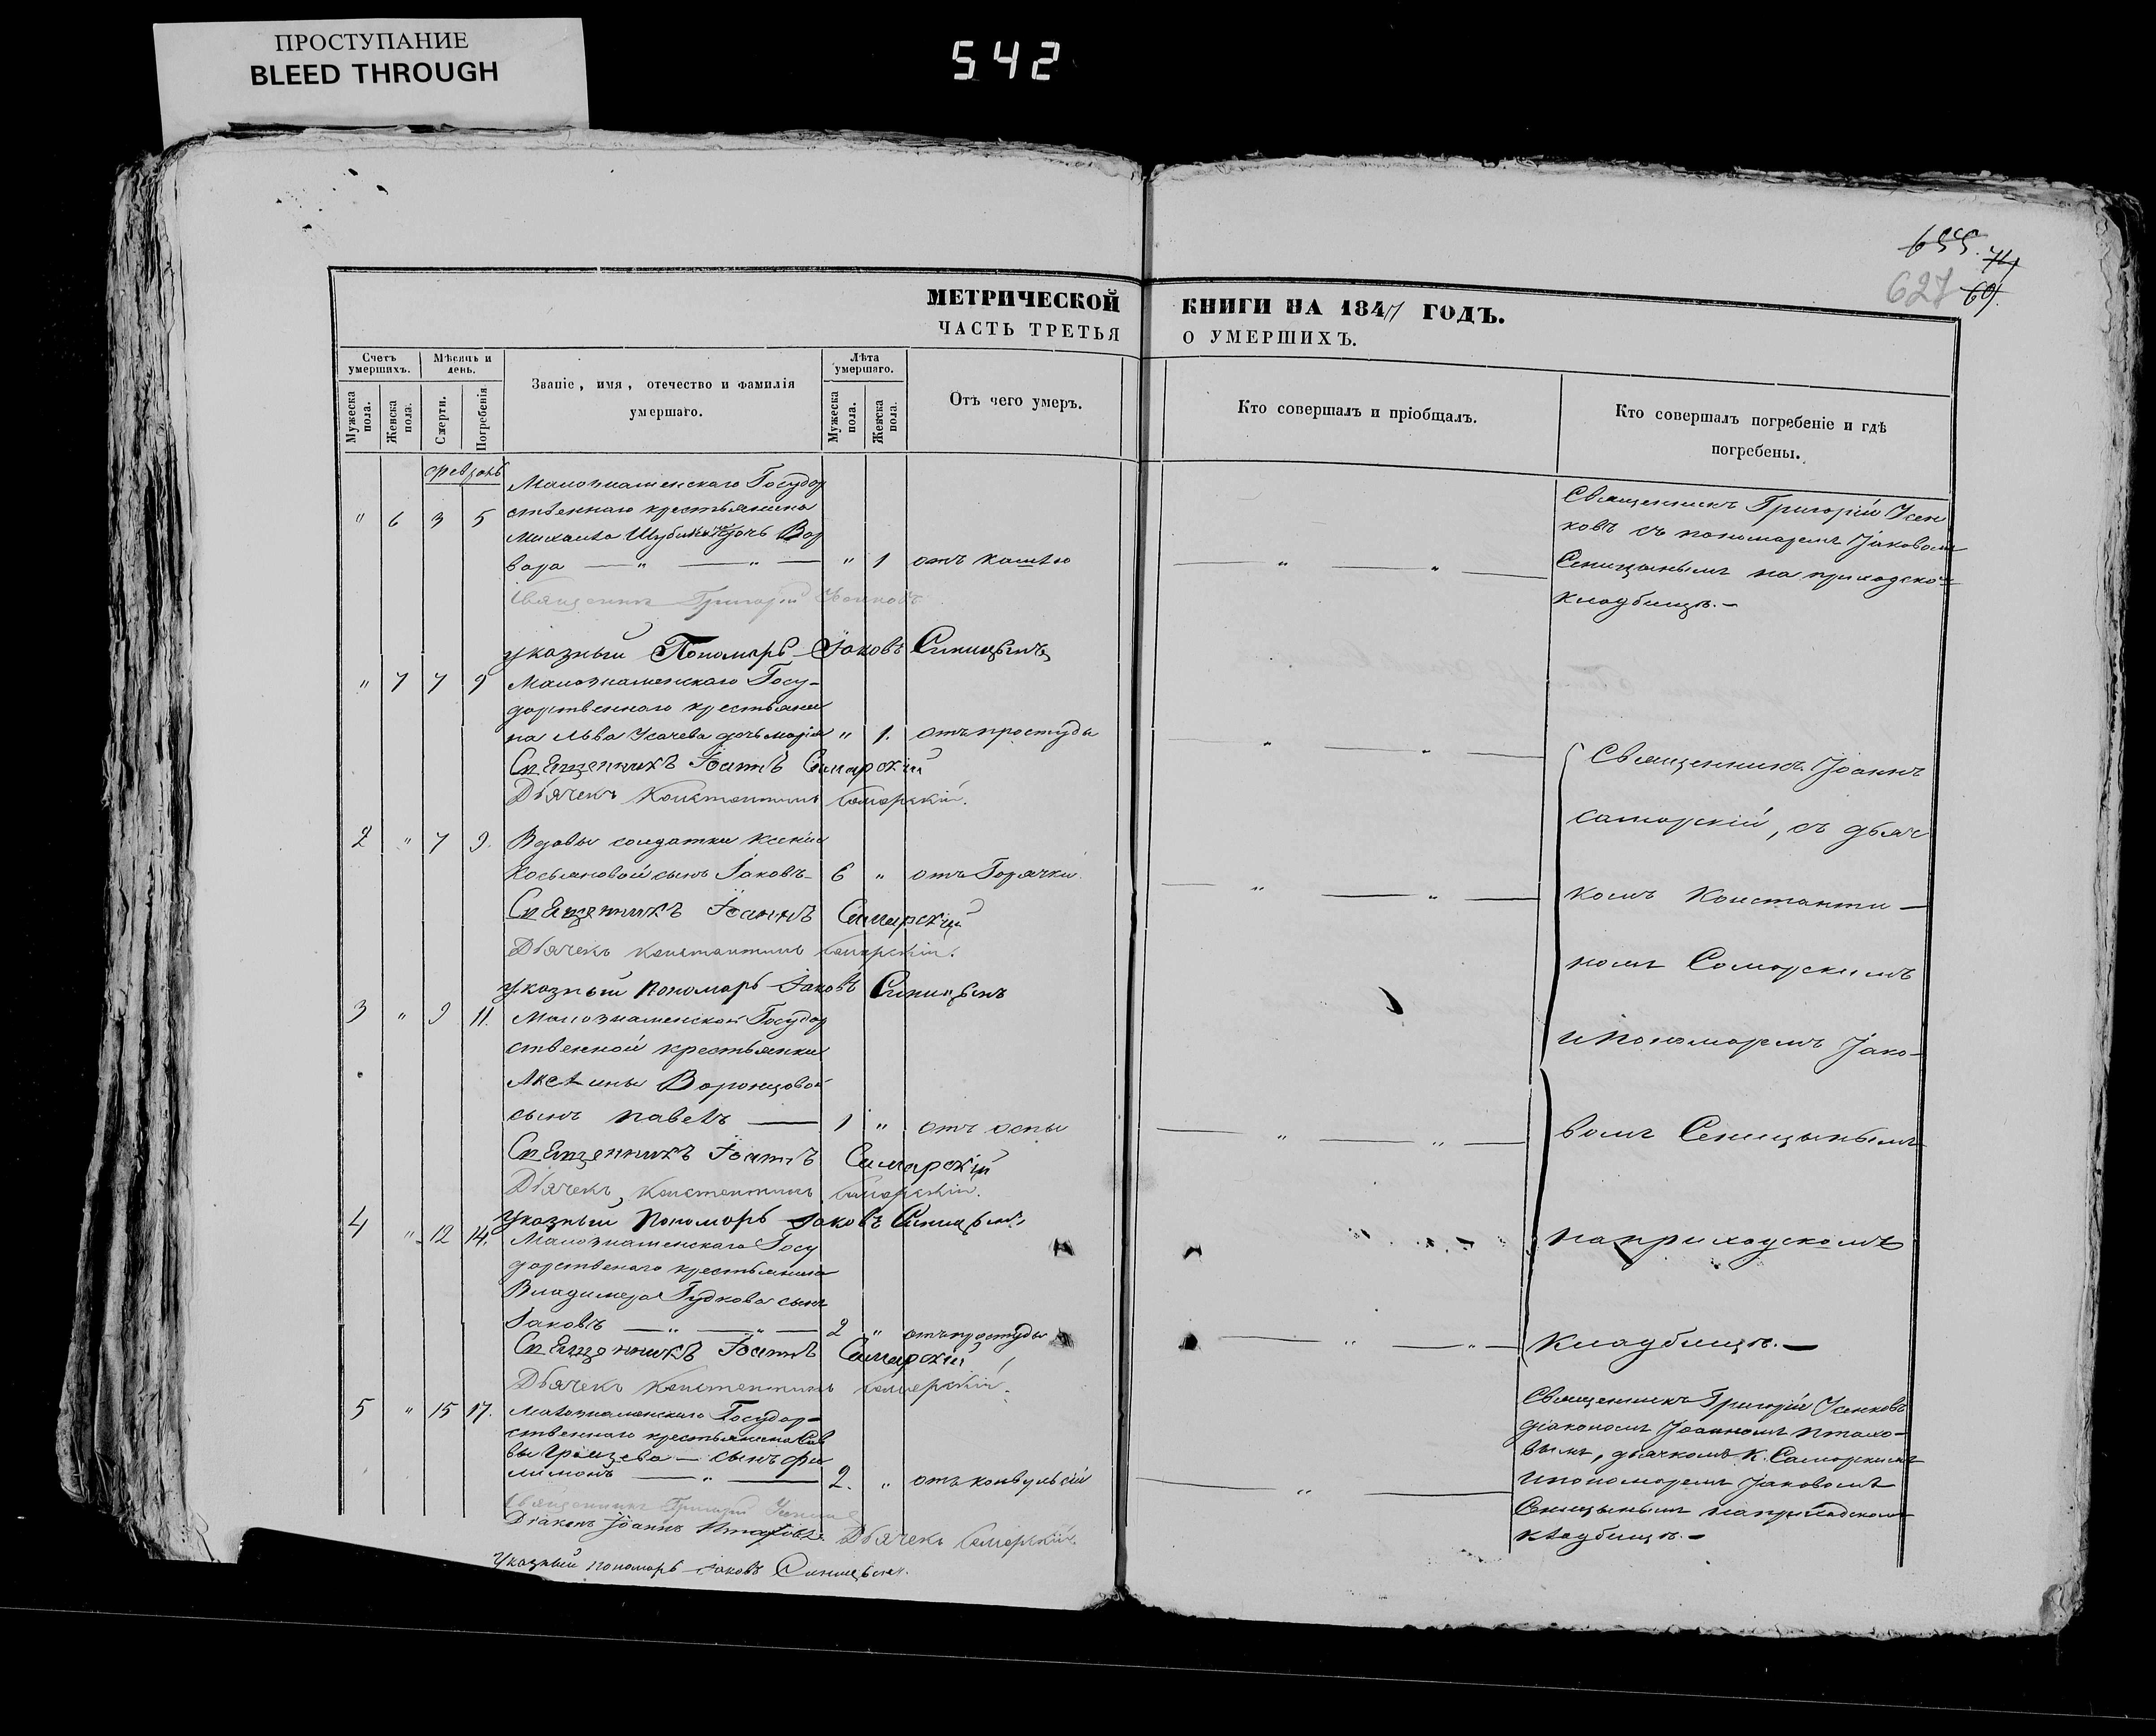 ПРОСТУПАНИЕ
BLEED THROUGH
542
655.
71
627
69.
МЕТРИЧЕСКОЙ КНИГИ НА 1847 ГОДЪ.
ЧАСТЬ ТРЕТЬЯ О УМЕРШИХЪ.
Счетъ умершихъ.
Мѣсяцъ и день.
Званіе, имя, отечество и фамилія умершаго.
Лѣта умершаго.
Отъ чего умеръ.
Кто совершалъ и пріобщалъ.
Кто совершалъ погребеніе и гдѣ погребены.
Мужеска пола.
Женска пола.
Смерти.
Погребенія
Мужеска пола.
Женска пола.
февраль
" 6 3 5
Малознаменскаго Государ
ственнаго крестьянина
Михаила Шубина дочь Вар
вара — " — " — " 1 отъ кашлю
Священникъ Григорій Усенковъ
указный Пономарь Іаковъ Синицынъ
Священникъ Григорій Усен
ковъ съ пономаремъ Іаковомъ
Сеницынымъ на приходском
кладбищѣ.—
" 7 7 9
Малознаменскаго Госу-
дарственнаго крестьяни
на Льва Усачева дочь Марія " 1. отъ простуды
Священникъ Іоаннъ Самарскій
Дьячекъ Константинъ Самарскій.
2 " 7 9.
Вдовы солдатки Ксеніи
Косьяновой сынъ Іаковъ— 6 " отъ Горячки.
Священникъ Іоаннъ Самарскій
Дьячекъ Константинъ Самарскій.
указный пономарь Іаковъ Синицынъ
3 " 9 11.
Малознаменской Государ
ственной крестьянки
Аксиньи Воронцовой
сынъ Павелъ — 1 " отъ оспы
Священникъ Іоаннъ Самарскій
Дьячекъ Константинъ Самарскій.
Указный пономарь Іаковъ Синицынъ
4 " 12 14.
Малознаменскаго Госу
дарственаго крестьянина
Владимера Гудкова сынъ
Іаковъ — " — " — 2 " отъ простуды
Священникъ Іоаннъ Самарскій
Дьячекъ Константинъ Самарскій.
Священникъ Іоаннъ
Самарскій, съ дьяч
комъ Константи—
номъ Самарскимъ
и пономаремъ Іако-
вомъ Сеницынымъ
на приходскомъ
кладбищѣ.—
5 " 15 17.
Малознаменскаго Государ-
ственнаго крестьянина Сав
вы — сынъ Фи
лимонъ — " — 2. " отъ конвульсій
Священникъ Григорій Усенковъ
Діаконъ Іоаннъ Птаховъ. Дьячекъ Самарскій.
Указный пономарь Іаковъ Синицынъ.
Священникъ Григорій Усенковъ
діакономъ Іоанномъ Птахо-
вымъ, дьячкомъ К. Самарскимъ
и пономаремъ Іаковомъ
Сеницынымъ на приходском
кладбищѣ.—